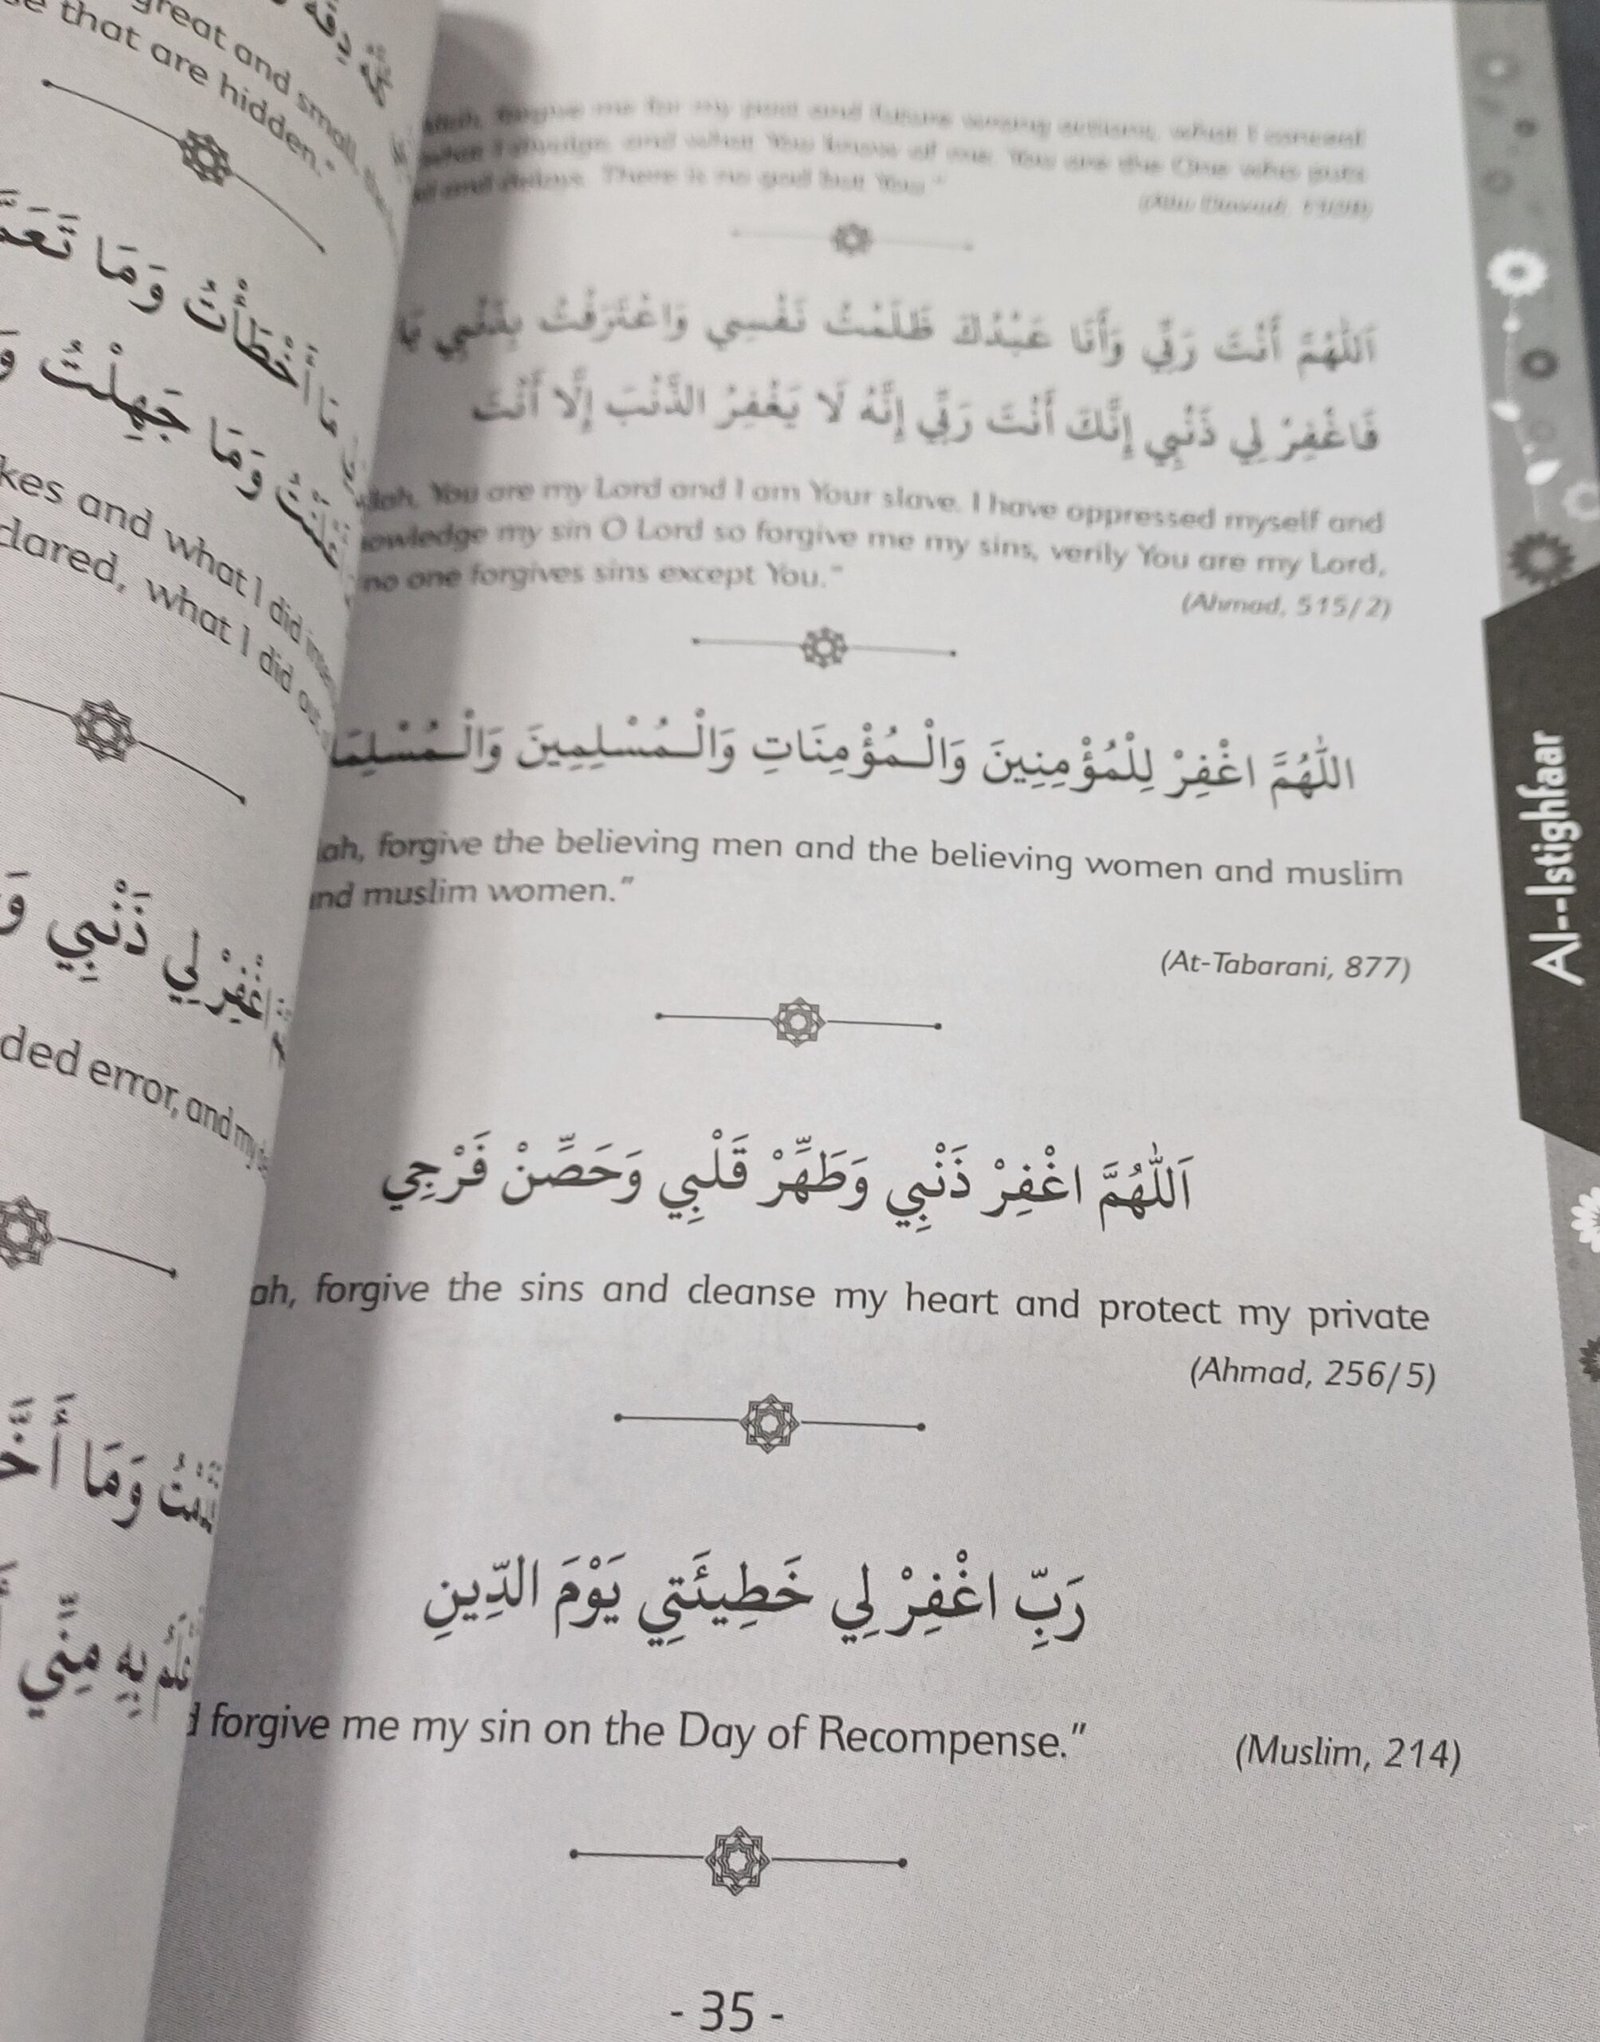 great and small,
that are hidden."
أَخْطَأْتُ وَمَا
جَهِلْتُ وَمَا
kes and what I did
clared, what I did
اغْفِرْ لِي ذَنْبِي
ded error, and my
وَمَا
بِهِ مِنِّي
forgive me for my past and future wrong actions, what I conceal
and what You know of me. You are the One who puts
and delays. There is no god but You."
اَللّٰهُمَّ أَنْتَ رَبِّي وَأَنَا عَبْدُكَ ظَلَمْتُ نَفْسِي وَاعْتَرَفْتُ بِذَنْبِي يَا
فَاغْفِرْ لِي ذَنْبِي إِنَّكَ أَنْتَ رَبِّي إِنَّهُ لَا يَغْفِرُ الذَّنْبَ إِلَّا أَنْتَ
lah, You are my Lord and I am Your slave. I have oppressed myself and
owledge my sin O Lord so forgive me my sins, verily You are my Lord,
no one forgives sins except You."
(Ahmad, 515/2)
اللّٰهُمَّ اغْفِرْ لِلْمُؤْمِنِينَ وَالْـمُؤْمِنَاتِ وَالْـمُسْلِمِينَ وَالْـمُسْلِمَا
lah, forgive the believing men and the believing women and muslim
nd muslim women."
(At-Tabarani, 877)
اَللّٰهُمَّ اغْفِرْ ذَنْبِي وَطَهِّرْ قَلْبِي وَحَصِّنْ فَرْجِي
ah, forgive the sins and cleanse my heart and protect my private
(Ahmad, 256/5)
رَبِّ اغْفِرْ لِي خَطِيئَتِي يَوْمَ الدِّينِ
d forgive me my sin on the Day of Recompense."
(Muslim, 214)
- 35 -
Al--Istighfaar